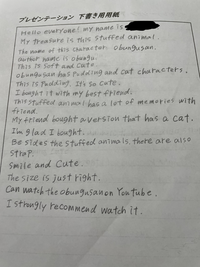 プレゼンテーション 下書き用用紙
Hello everyone! my name is
My treasure is this stuffed animal.
The name of this character obungusan.
author name is obungu.
This is soft and cute.
obungusan has Pudding and cat characters.
This is Pudding. It's so cute.
I bought it with my best friend.
This stuffed animal has a lot of memories with
friend.
My friend bought a version that has a cat.
I'm glad I bought.
Besides the stuffed animals there are also
strap.
smile and cute.
The size is just right.
Can watch the obungusan on YouTube.
I strongly recommend watch it.